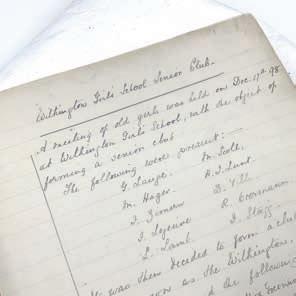 Withington Girls' School Senior Club.
A meeting of old girls was held on Dec. 17th 98
at Withington Girls' School, with the object of
forming a senior club
The following were present:—
G. Lange. M. Scott.
M. Hager. A. J. Lunt.
J. Simon B.
J. Lejeune R.
L. Lamb. D.
was then decided to form a club
as the Withington,
the following